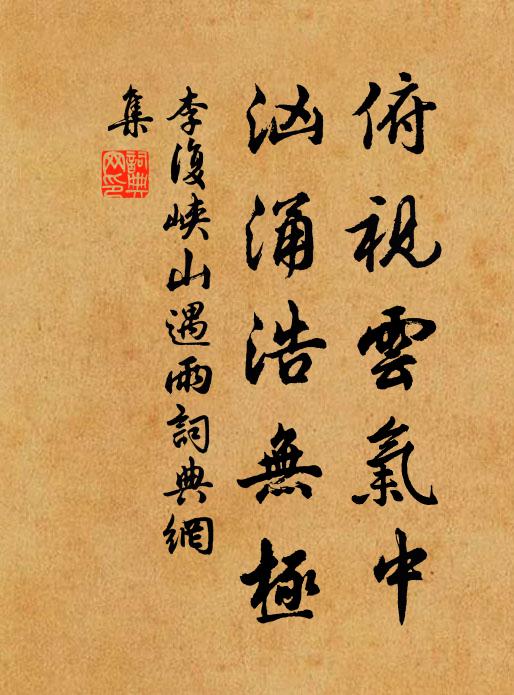 俯視雲氣中
洶涌浩無極
李復峽山遇雨詞典網
集
詞典
网印